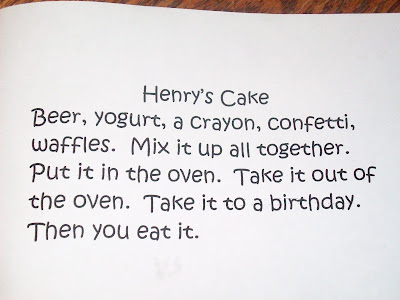 Henry's Cake
Beer, yogurt, a crayon, confetti,
waffles.  Mix it up all together.
Put it in the oven.  Take it out of
the oven.  Take it to a birthday.
Then you eat it.